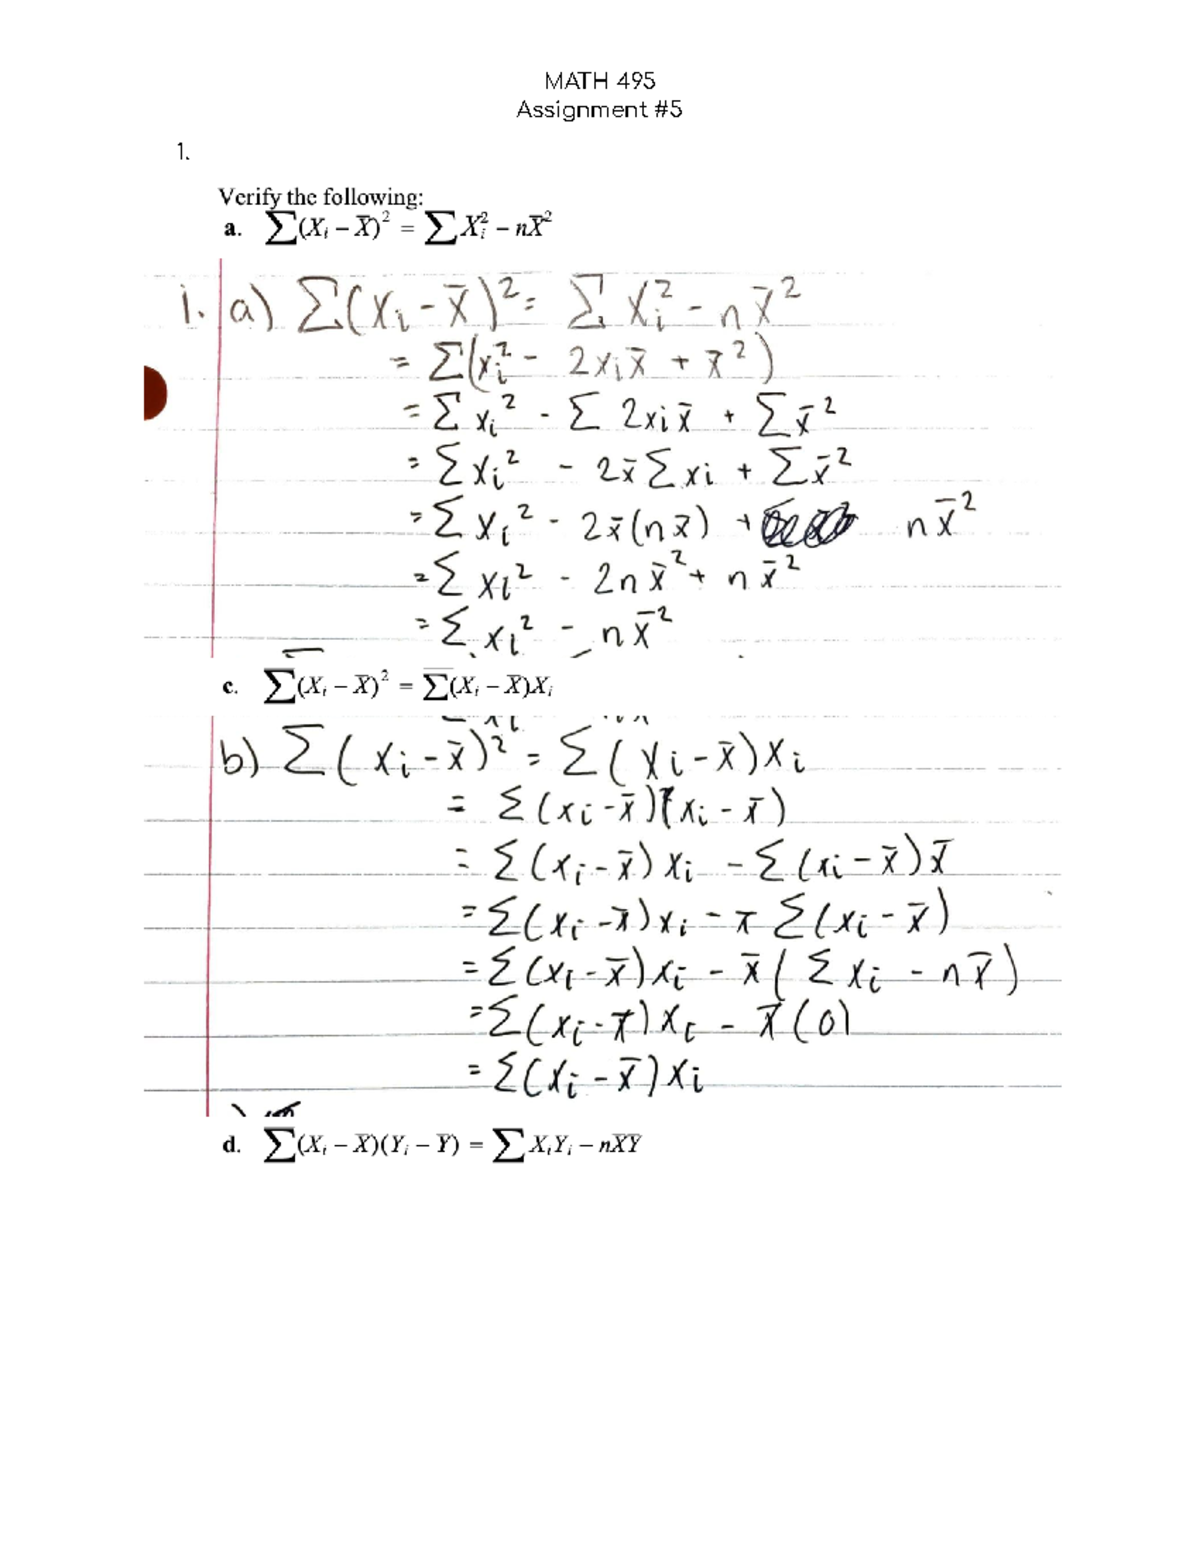 MATH 495
Assignment #5
1.
Verify the following:
a. ∑(Xᵢ – X̄)² = ∑Xᵢ² – nX̄²
1. a) Σ(Xᵢ - X̄)² = Σ Xᵢ² - nX̄²
= Σ(xᵢ² - 2xᵢx̄ + x̄²)
= Σ xᵢ² - Σ 2xᵢx̄ + Σ x̄²
= Σ xᵢ² - 2x̄ Σ xᵢ + Σ x̄²
= Σ xᵢ² - 2x̄(nx̄) + nx̄²
= Σ xᵢ² - 2nx̄² + nx̄²
= Σ xᵢ² - nx̄²
c. ∑(Xᵢ – X̄)² = ∑(Xᵢ – X̄)Xᵢ
b) Σ(xᵢ - x̄)² = Σ(xᵢ - x̄)xᵢ
= Σ(xᵢ - x̄)(xᵢ - x̄)
= Σ(xᵢ - x̄)xᵢ - Σ(xᵢ - x̄)x̄
= Σ(xᵢ - x̄)xᵢ - x̄ Σ(xᵢ - x̄)
= Σ(xᵢ - x̄)xᵢ - x̄(Σ xᵢ - nx̄)
= Σ(xᵢ - x̄)xᵢ - x̄(0)
= Σ(xᵢ - x̄)xᵢ
d. ∑(Xᵢ – X̄)(Yᵢ – Ȳ) = ∑XᵢYᵢ – nX̄Ȳ